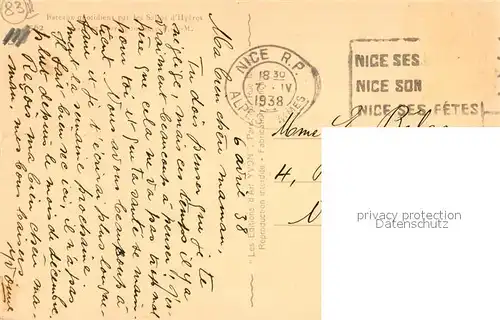 83
Bateaux quotidiens par les S
d'Hyères
NICE R.P.
18 30
6 - IV
1938
ALPES MARITIMES
NICE SES
NICE SON
NICE SES FÊTES
6 avril 38
Ma bien chère maman,
Tu dois penser que je te
néglige, mais ces temps il y a
vraiment beaucoup à penser. J'es-
père que cela ne va pas trop mal
pour toi et que ta santé se main-
tient. Nous avons beaucoup à
faire et je t'écrirai plus longue-
ment la semaine prochaine.
Il fait bien sec ici, il n'a pas
plu depuis le mois de décembre.
Reçois ma bien chère ma-
man, mes bons baisers
Mme
4,
"Les Editions d'Art
Reproduction interdite - Fabrication
privacy protection
Datenschutz